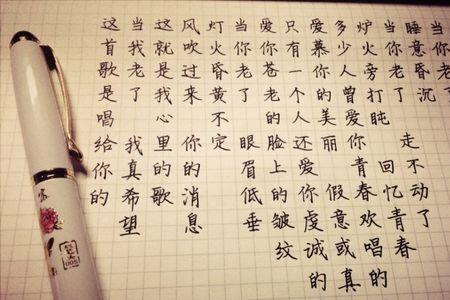 当你老了
睡意昏沉
当你老了 走不动了
炉火旁打盹 回忆青春
多少人曾爱你青春欢唱的
爱慕你的美丽 假意或真
只有一个人还爱你虔诚的
爱你苍老的脸上的皱纹
当你老了 眼眉低垂
灯火昏黄不定
风吹过来 你的消息
这就是我心里的歌
当我老了 我真希望
这首歌是唱给你的